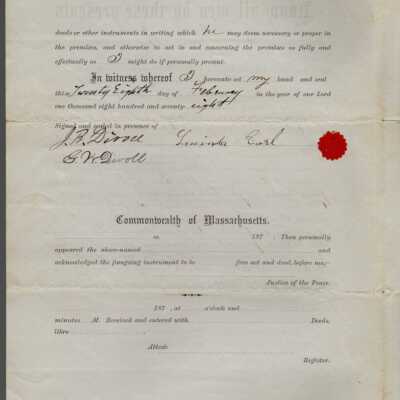 Know all men by these presents
deeds or other instruments in writing which he may deem necessary or proper in
the premises, and otherwise to act in and concerning the premises as fully and
effectually as I might do if personally present.
In witness whereof I hereunto set my hand and seal
this Twenty Eighth day of February in the year of our Lord
one thousand eight hundred and seventy-eight
Signed and sealed in presence of
J. R. Divoll
G. W. Divoll
Commonwealth of Massachusetts.
ss. 187 . Then personally
appeared the above-named and
acknowledged the foregoing instrument to be free act and deed, before me,
Justice of the Peace.
187 , at o'clock and
minutes M. Received and entered with Deeds,
libro
Attest:
Register.